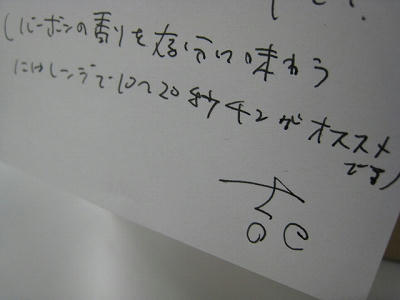 (バーボンの香りを存分に味わう
にはレンジで10〜20秒チンがオススメ
です)